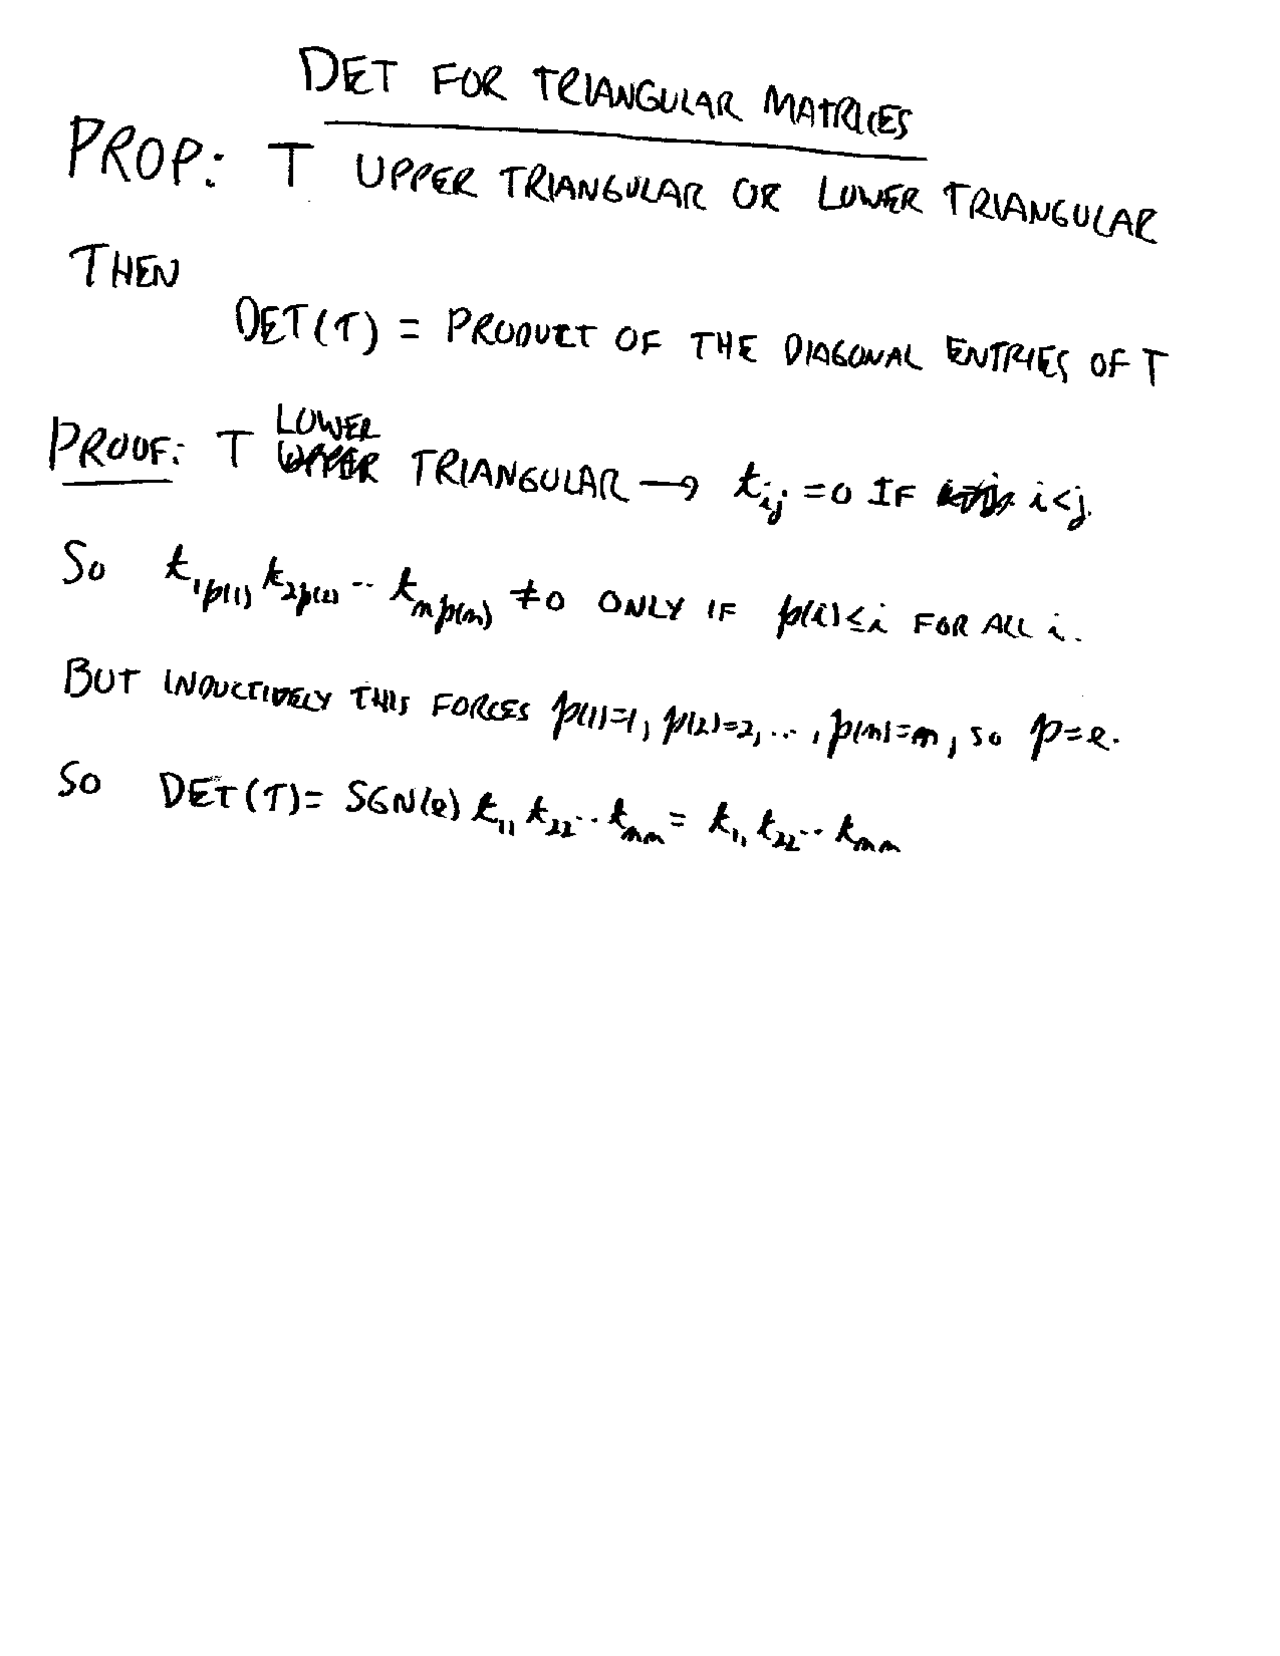 DET FOR TRIANGULAR MATRICES
PROP: T UPPER TRIANGULAR OR LOWER TRIANGULAR
THEN
DET(T) = PRODUCT OF THE DIAGONAL ENTRIES OF T
PROOF: T LOWER TRIANGULAR → t_{ij} = 0 IF i<j.
SO t_{1p(1)} t_{2p(2)} ·· t_{np(n)} ≠0 ONLY IF p(i)≤i FOR ALL i.
BUT INDUCTIVELY THIS FORCES p(1)=1, p(2)=2, ..., p(n)=n, SO p=e.
SO DET(T)= SGN(e) t_{11} t_{22} ·· t_{nn} = t_{11} t_{22} ·· t_{nn}